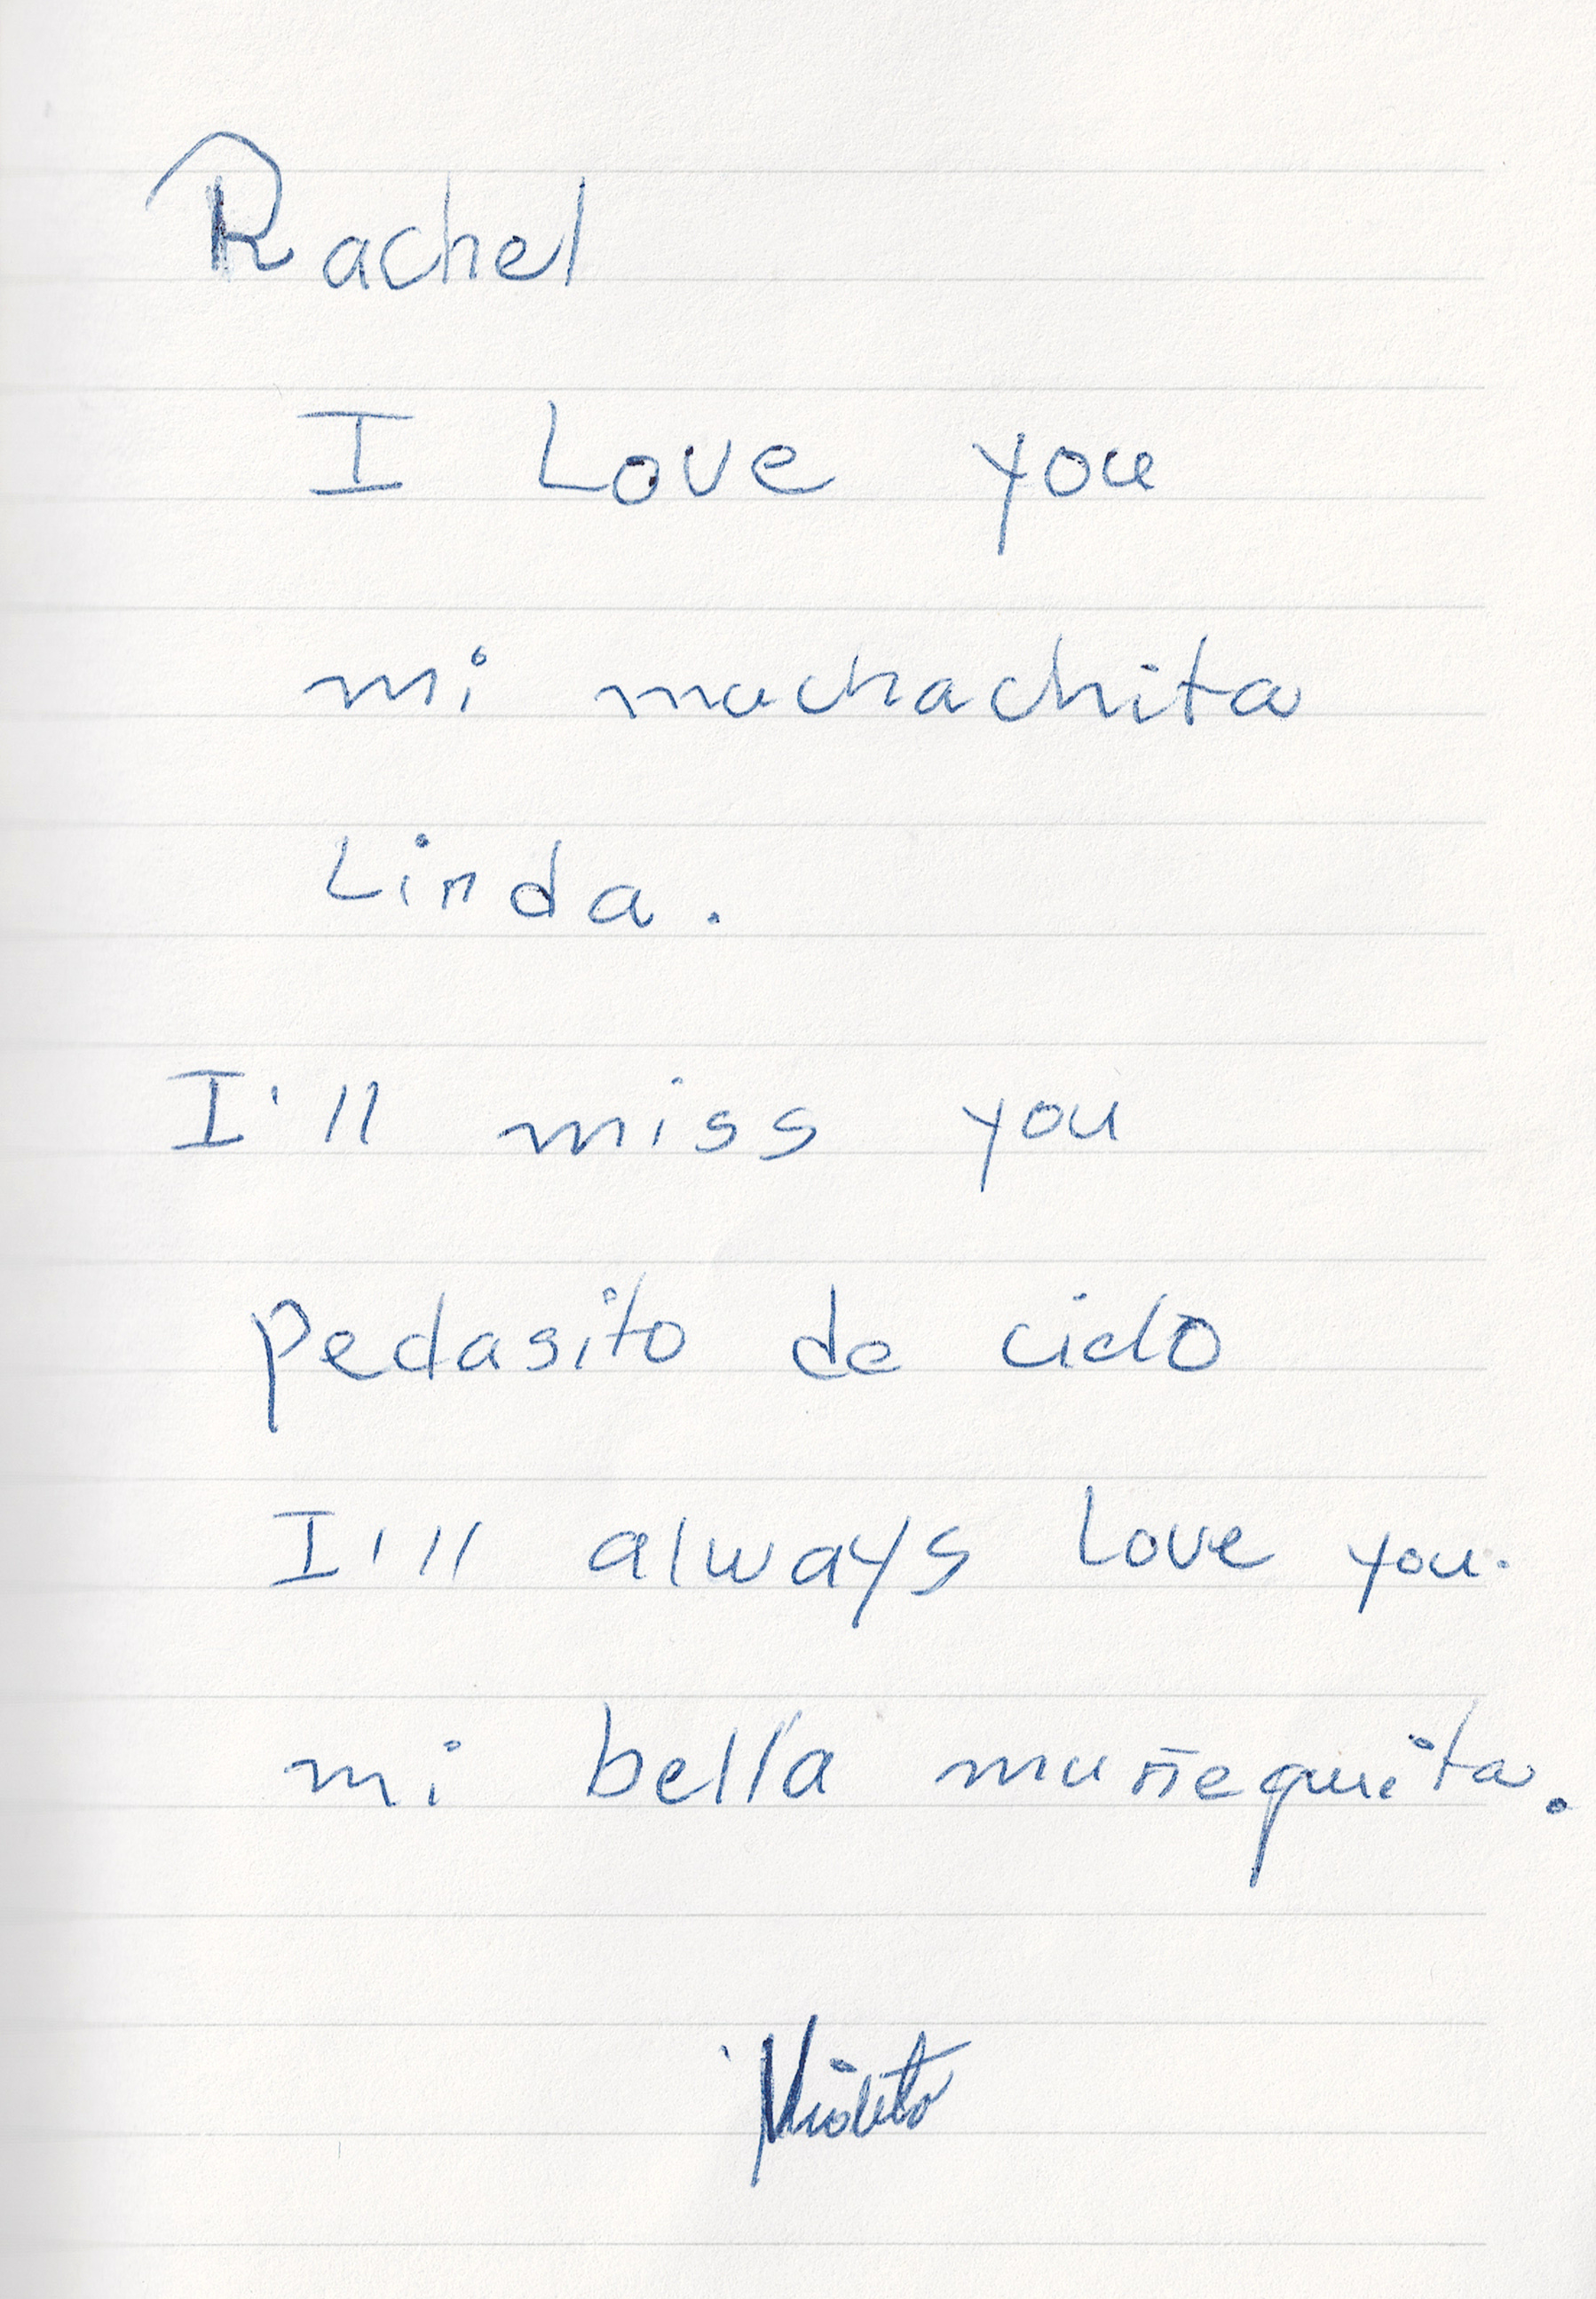 Rachel
I Love you
mi muchachita
Linda.
I'll miss you
pedasito de cielo
I'll always Love you.
mi bella muñequita.